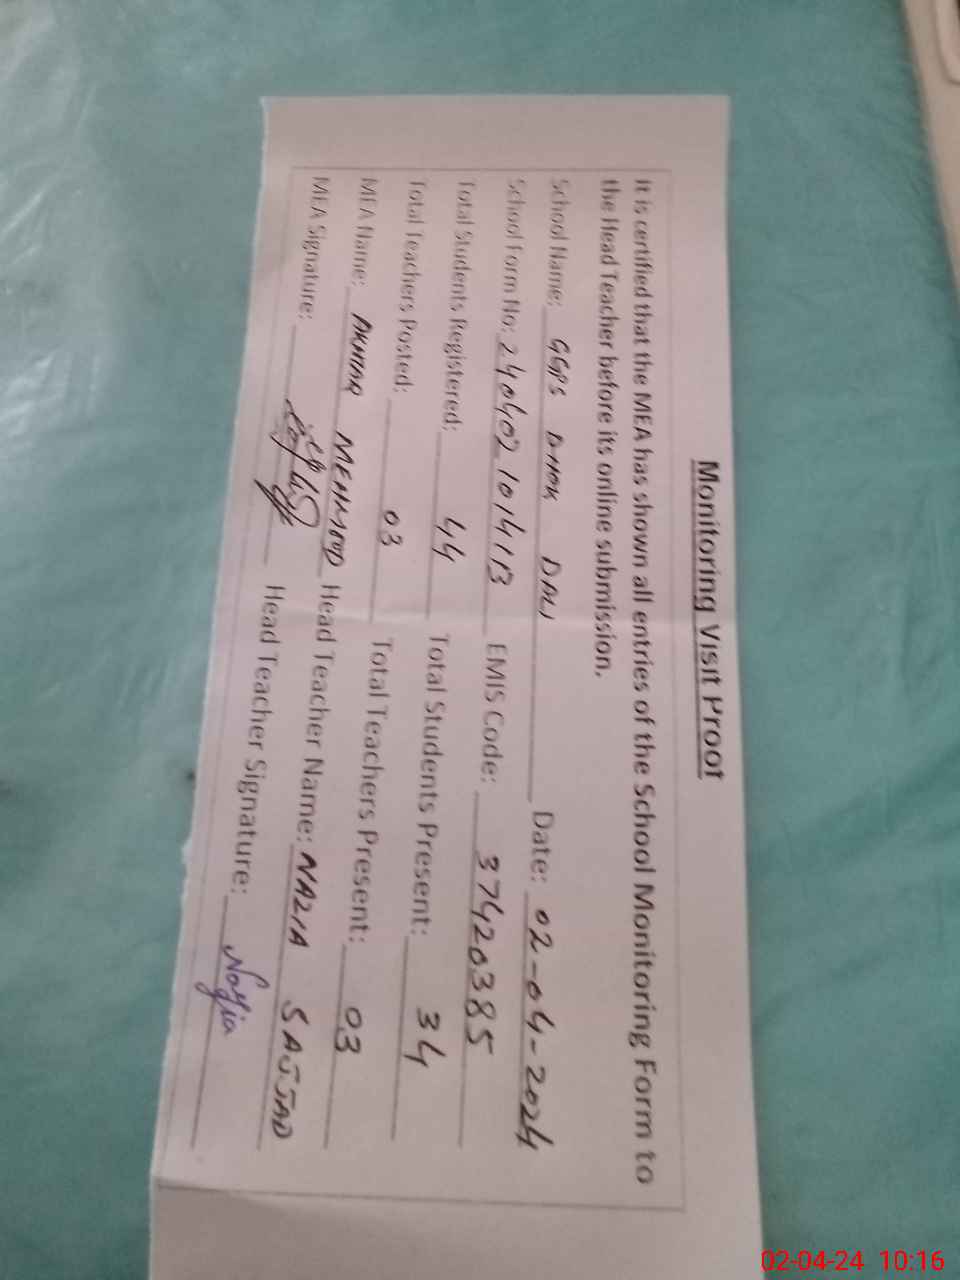 Monitoring Visit Proof
It is certified that the MEA has shown all entries of the School Monitoring Form to
the Head Teacher before its online submission.
School Name: GGPS DHOK DALI Date: 02-04-2024
School Form No: 240402101413 EMIS Code: 37420385
Total Students Registered: 44 Total Students Present: 34
Total Teachers Posted: 03 Total Teachers Present: 03
MEA Name: AKHTAR MEHMOOD Head Teacher Name: NAZIA SAJJAD
MEA Signature: Head Teacher Signature: Nazia
02-04-24 10:16